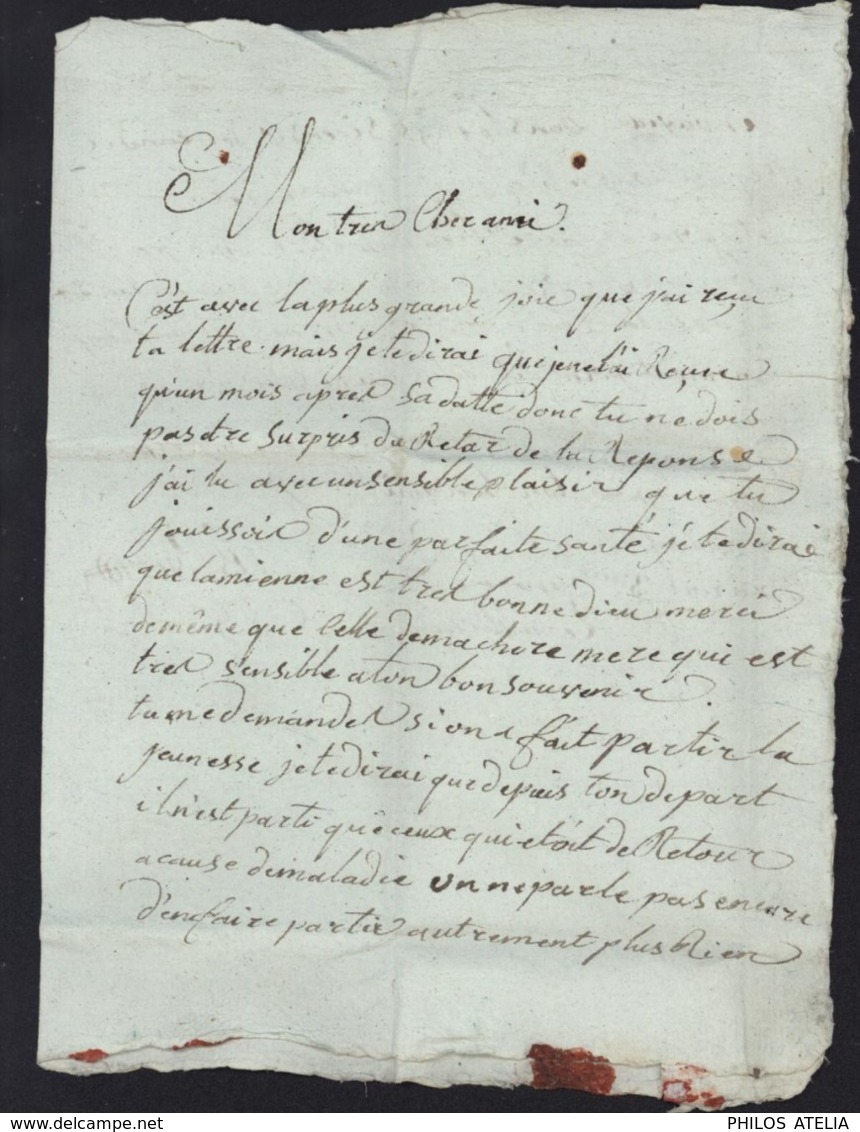 Mon tres Cher ami.
C'est avec la plus grande joie que j'ai reçu
ta lettre. mais je te dirai que je ne l'ai Reçue
qu'un mois apres sa datte donc tu ne dois
pas etre surpris du Retar de la Reponse
j'ai lu avec un sensible plaisir que tu
jouissois d'une parfaite santé je te dirai
que la mienne est tres bonne dieu merci
de même que Celle de ma chere mere qui est
tres sensible a ton bon souvenir.
tu me demandes si on a fait partir la
jeunesse je te dirai que depuis ton depart
il n'est parti que ceux qui etoit de Retour
a cause de maladie on ne parle pas encore
d'en faire partir autrement plus Rien
PHILOS ATELIA
www.delcampe.net